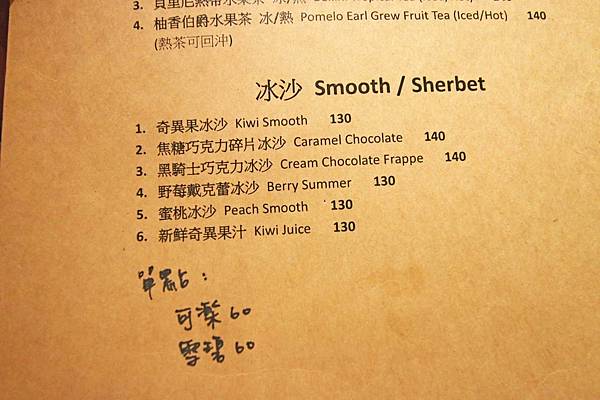 4. 柚香伯爵水果茶 冰/熱 Pomelo Earl Grew Fruit Tea (Iced/Hot) 140
(熱茶可回沖)
冰沙 Smooth / Sherbet
1. 奇異果冰沙 Kiwi Smooth 130
2. 焦糖巧克力碎片冰沙 Caramel Chocolate 140
3. 黑騎士巧克力冰沙 Cream Chocolate Frappe 140
4. 野莓戴克蕾冰沙 Berry Summer 130
5. 蜜桃冰沙 Peach Smooth 130
6. 新鮮奇異果汁 Kiwi Juice 130
單點：
可樂 60
雪碧 60